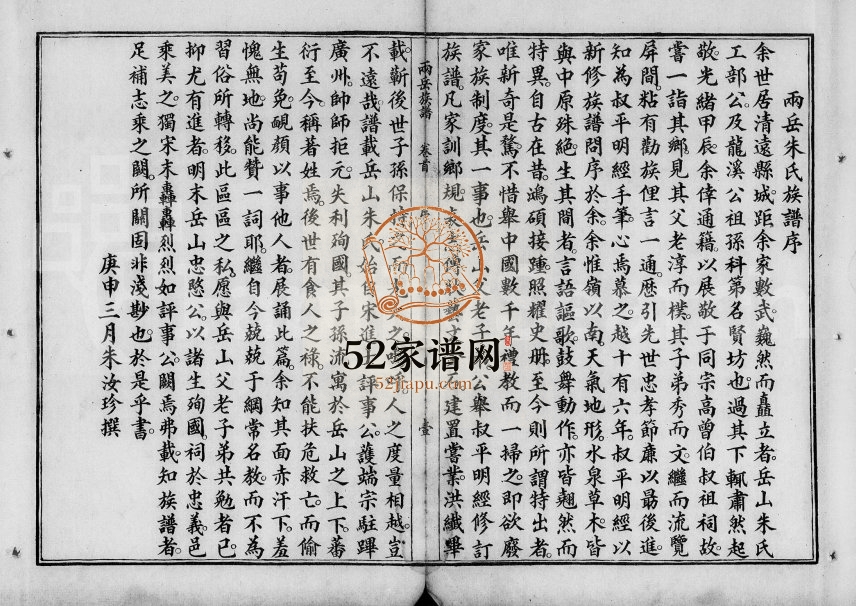 兩岳朱氏族譜序
余世居清遠縣城距余家數武巍然而矗立者岳山朱氏
工部公及龍溪公祖孫科第名賢坊也過其下輒肅然起
敬光緒甲辰余倖通籍以展敬于同宗高曾伯叔祖祠故
嘗一詣其鄉見其父老淳而樸其子弟秀而文繼而流覽
屏間粘有勸族俚言一通歷引先世忠孝節廉以最後進
知為叔平明經手筆心焉慕之越十有六年叔平明經以
新修族譜問序於余余惟嶺以南天氣地形水泉草木皆
與中原殊絕生其間者言語謳歌鼓舞動作亦皆翹然而
特異自古在昔鴻碩接踵照耀史册至今則所謂特出者
唯新奇是騖不惜舉中國數千年禮教而一掃之即欲廢
家族制度其一事也岳山父老子 公舉叔平明經修訂
族譜凡家訓鄉規 傳 文 建置嘗業洪纖畢
兩岳族譜 卷首 序 壹
載蘄後世子孫保 而 之 人之度量相越豈
不遠哉譜載岳山朱氏始自宋進士評事公護端宗駐蹕
廣州帥師拒元失利殉國其子孫流寓於岳山之上下蕃
衍至今稱著姓焉後世有食人之祿不能扶危救亡而偷
生苟免靦顏以事他人者展誦此篇余知其面赤汗下羞
愧無地尚能贊一詞耶繼自今兢兢于綱常名教而不為
習俗所轉移此區區之私願與岳山父老子弟共勉者已
抑尤有進者明末岳山忠愍公以諸生殉國祠於忠義邑
乘美之獨宋末轟轟烈烈如評事公闕焉弗載知族譜者
足補志乘之闕所關固非淺尠也於是乎書
庚申三月朱汝珍撰
52家谱网
52jiapu.com